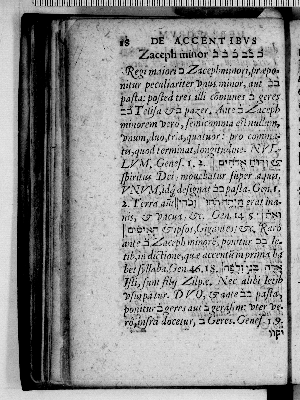 18 DE ACCENTIBVS
Zaceph minor
Regi maiori ב Zaceph minori, præpo-
nitur peculiariter vnus minor, aut בב
pasta: posteà tres illi cōmunes ב geres
בב Telisa & ב pazer. Ante ב Zaceph
minorem verò, semicomma est nullum,
vnum, duo, tria, quatuor: pro comma-
tis, quod terminat, longitudine. NVL-
LVM, Genes. 1. 2. ורוח אלהים &
spiritus Dei mouebatur super aquas,
VNVM, idq́; designat ב pasta. Gen. 1.
2. Terra autē והארץ erat ina-
nis, & vacua, &c. Gen. 14. 5.
& ipsos, Gigantes, &c. Rarò
ante ב Zaceph minorē, ponitur בב Ie-
tib, in dictione, quæ accentum prima ha
bet syllaba. Gen. 46. 18. אלה בני זלפה
Isti, sunt filij Zilpæ. Nec alibi Ietib
vsurpatur. DVO, & ante בב pasta,
ponitur ב geres aut ב gerasim: vter ve-
rò, infrà docetur, ב Geres. Genes. 19.